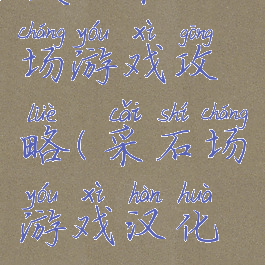 chǎng yóu xì gōng
场游戏攻
lüè cǎi shí chǎng
略(采石场
yóu xì hàn huà
游戏汉化